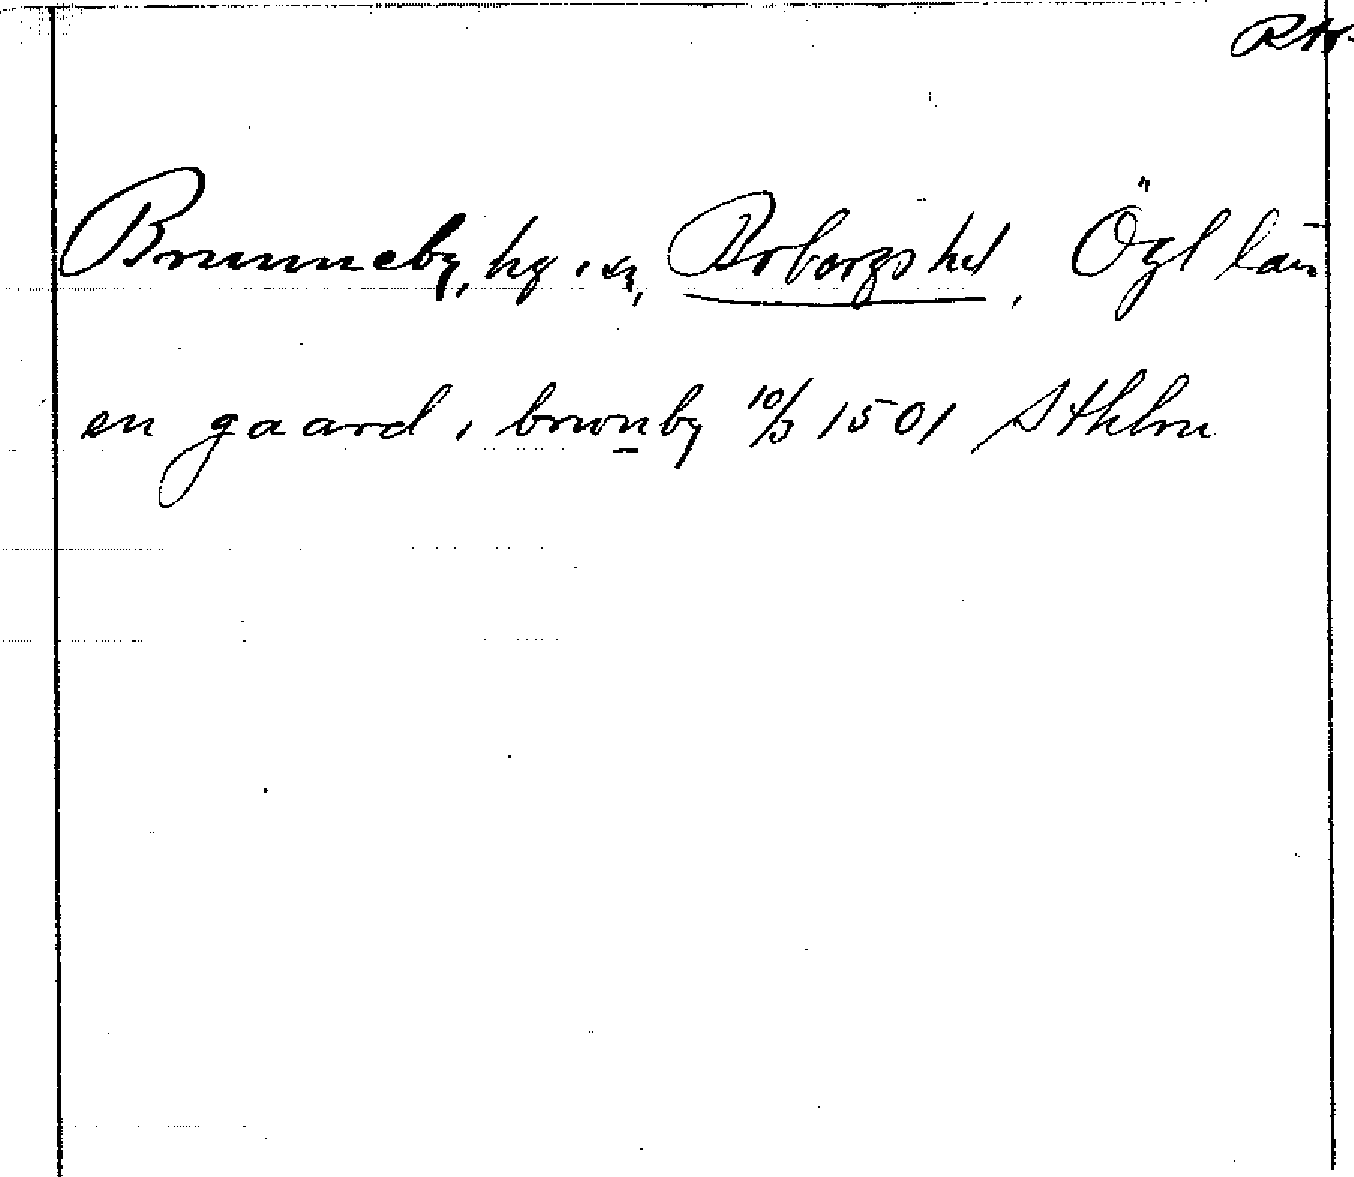 RAp.
Brunneby, hg. o. sn, Borbergs hd, Ögl län
en gaard i brwnby 10/3 1501 Sthlm